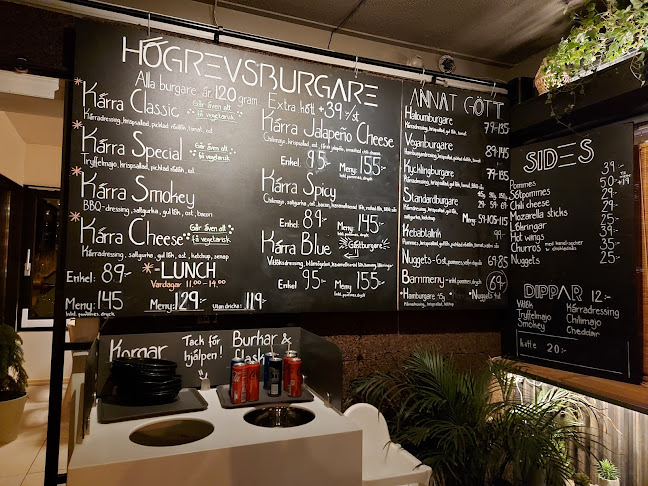 HÖGREVSBURGARE
Alla burgare är 120 gram Extra kött +39:-/st
*Kärra Classic Går även att få vegetarisk
Kärradressing, krispsallad, picklad rödlök, tomat, ost
*Kärra Special Går även att få vegetarisk
Tryffelmajo, krispsallad, picklad rödlök, ost
*Kärra Smokey
BBQ-dressing, saltgurka, gul lök, ost, bacon
*Kärra Cheese Går även att få vegetarisk
Kärradressing, saltgurka, gul lök, ost, ketchup, senap
Enkel: 89:-
Meny: 145
inkl. pommes, dryck
*-LUNCH
Vardagar 11.00-14.00
Meny: 129:- Utan dricka: 119:-
Kärra Jalapeño Cheese
Enkel: 95:- Meny: 155:-
inkl. pommes, dryck
Kärra Spicy
Enkel: 89:- Meny: 145:-
inkl. pommes, dryck
Kärra Blue Gästburgare
Enkel: 95:- Meny: 155:-
inkl. pommes, dryck
ANNAT GÖTT
Halloumburgare 79-135
Veganburgare 89-145
Kycklingburgare 79-135
Standardburgare
Meny -59-105-115
Kebabtallrik 99:-
Nuggets 6st
69:-85
Barnmeny - inkl. pommes, dryck 69:-
-Hamburgare 45g -Nuggets 4st
SIDES
Pommes 39:-
Sötpommes 50:-
Chili cheese 29:-
Mozarella sticks 29:-
Lökringar 25:-
Hot wings
Churros 35:-
Nuggets 25:-
DIPPAR 12:-
Vitlök Kärradressing
Tryffelmajo Chilimajo
Smokey Cheddar
Kaffe 20:-
Korgar
Tack för hjälpen!
Burkar &
flask